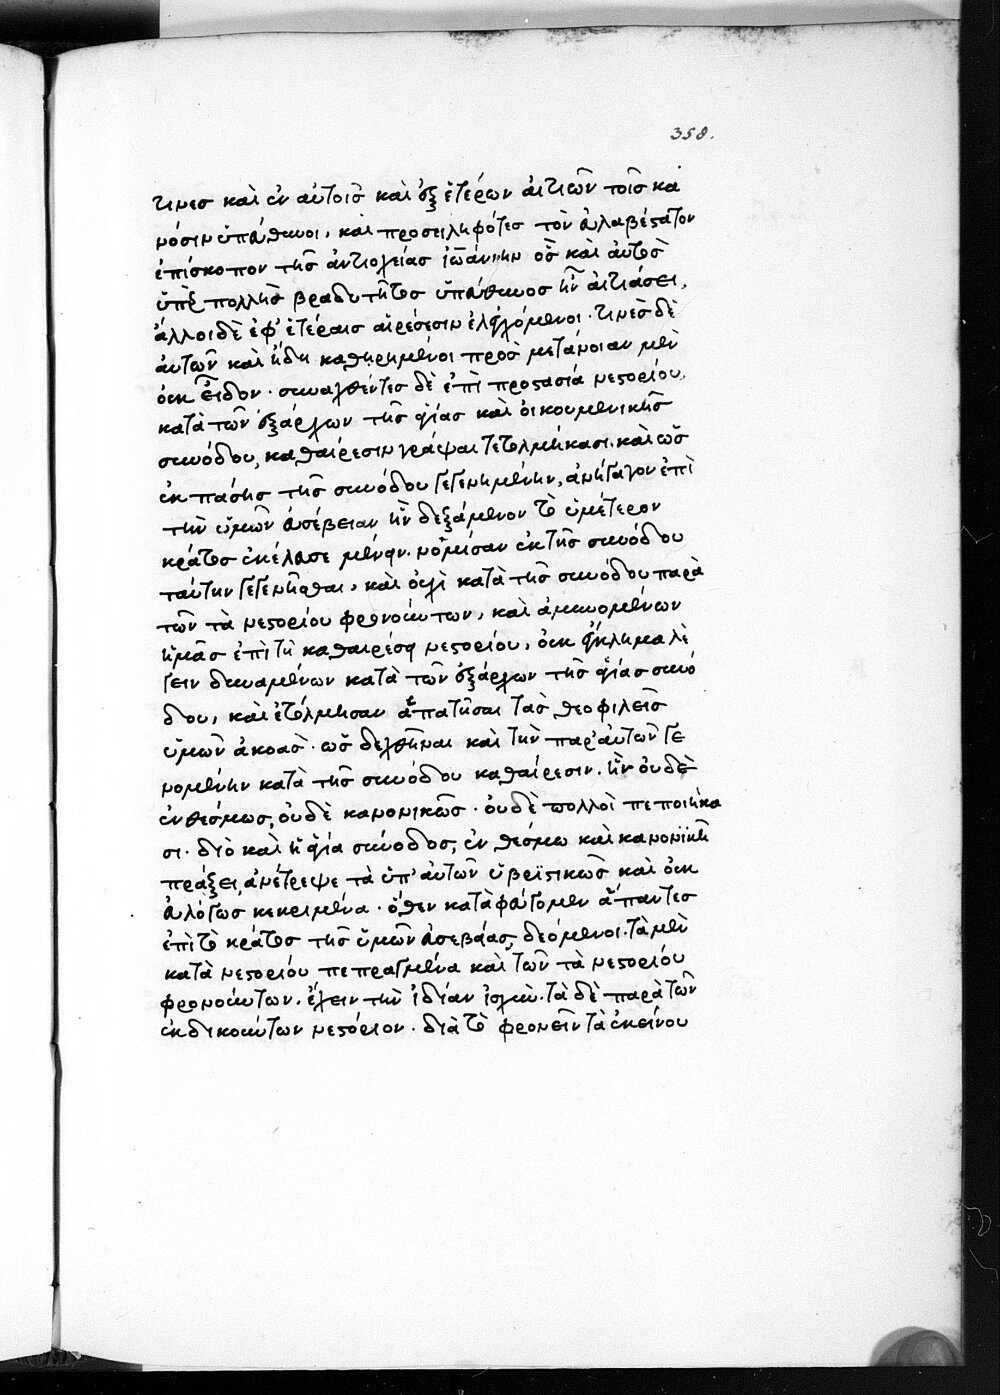 358.
τινες καὶ ἐν αὐτοῖς καὶ ἐξ ἑτέρων αἰτιῶν τοῖς κα
νόσιν ὑπεύθυνοι, καὶ προσειληφότες τὸν εὐλαβέστατον
ἐπίσκοπον τῆς ἀντιοχείας ἰωάννην ὃς καὶ αὐτὸς
ὑπὲρ πολλῆς βραδυτῆτος ὑπεύθυνος ἦν αἰτιάσει,
ἄλλοι δὲ ἐφ' ἑτέραις αἱρέσεσιν ἐλεγχόμενοι. τινὲς δὲ
αὐτῶν καὶ ἤδη καθηρημένοι πρὸς μετάνοιαν μὲν
οὐκ εἶδον. συναχθέντες δὲ ἐπὶ προστασία νεστορίου,
κατὰ τῶν ἐξάρχων τῆς ἁγίας καὶ οἰκουμενικῆς
συνόδου, καθαίρεσιν γράψαι τετολμήκασι. καὶ ὡς
ἐκ πάσης τῆς συνόδου γεγενημένην, ἀνήγαγον ἐπὶ
τὴν ὑμῶν εὐσέβειαν ἣν δεξάμενον τὸ ὑμέτερον
κράτος ἐκέλευσε μένειν. νομίσαν ἐκ τῆς συνόδου
ταύτην γεγενῆσθαι, καὶ οὐχὶ κατὰ τῆς συνόδου παρὰ
τῶν τὰ νεστορίου φρονούντων, καὶ ἀμυνομένων
ἡμᾶς ἐπὶ τῆ καθαιρέσει νεστορίου, οὐκ ἔγκλημα λέ
γειν δυναμένων κατὰ τῶν ἐξάρχων τῆς ἁγίας συνό
δου, καὶ ἐτόλμησαν ἀπατῆσαι τὰς θεοφιλεῖς
ὑμῶν ἀκοὰς. ὡς δεχθῆναι καὶ τὴν παρ' αὐτῶν γε
νομένην κατὰ τῆς συνόδου καθαίρεσιν. ἣν οὐδὲ
ἐνθέσμως, οὐδὲ κανονικῶς. οὐδὲ πολλοὶ πεποιήκα
σι. διὸ καὶ ἡ ἁγία σύνοδος, ἐν θέσμω καὶ κανονϊκῆ
πράξει, ἀνέτρεψε τὰ ὑπ' αὐτῶν ὑβριστικῶς καὶ οὐκ
εὐλόγως κεκριμένα. ὅθεν καταφεύγομεν ἅπαντες
ἐπὶ τὸ κράτος τῆς ὑμῶν εὐσεβείας, δεόμενοι. τὰ μὲν
κατὰ νεστορίου πεπραγμένα καὶ τῶν τὰ νεστορίου
φρονούντων. ἔχειν τὴν ἰδίαν ἰσχὺν. τὰ δὲ παρὰ τῶν
ἐκδικούντων νεστόριον. διὰ τὸ φρονεῖν τὰ ἐκείνου